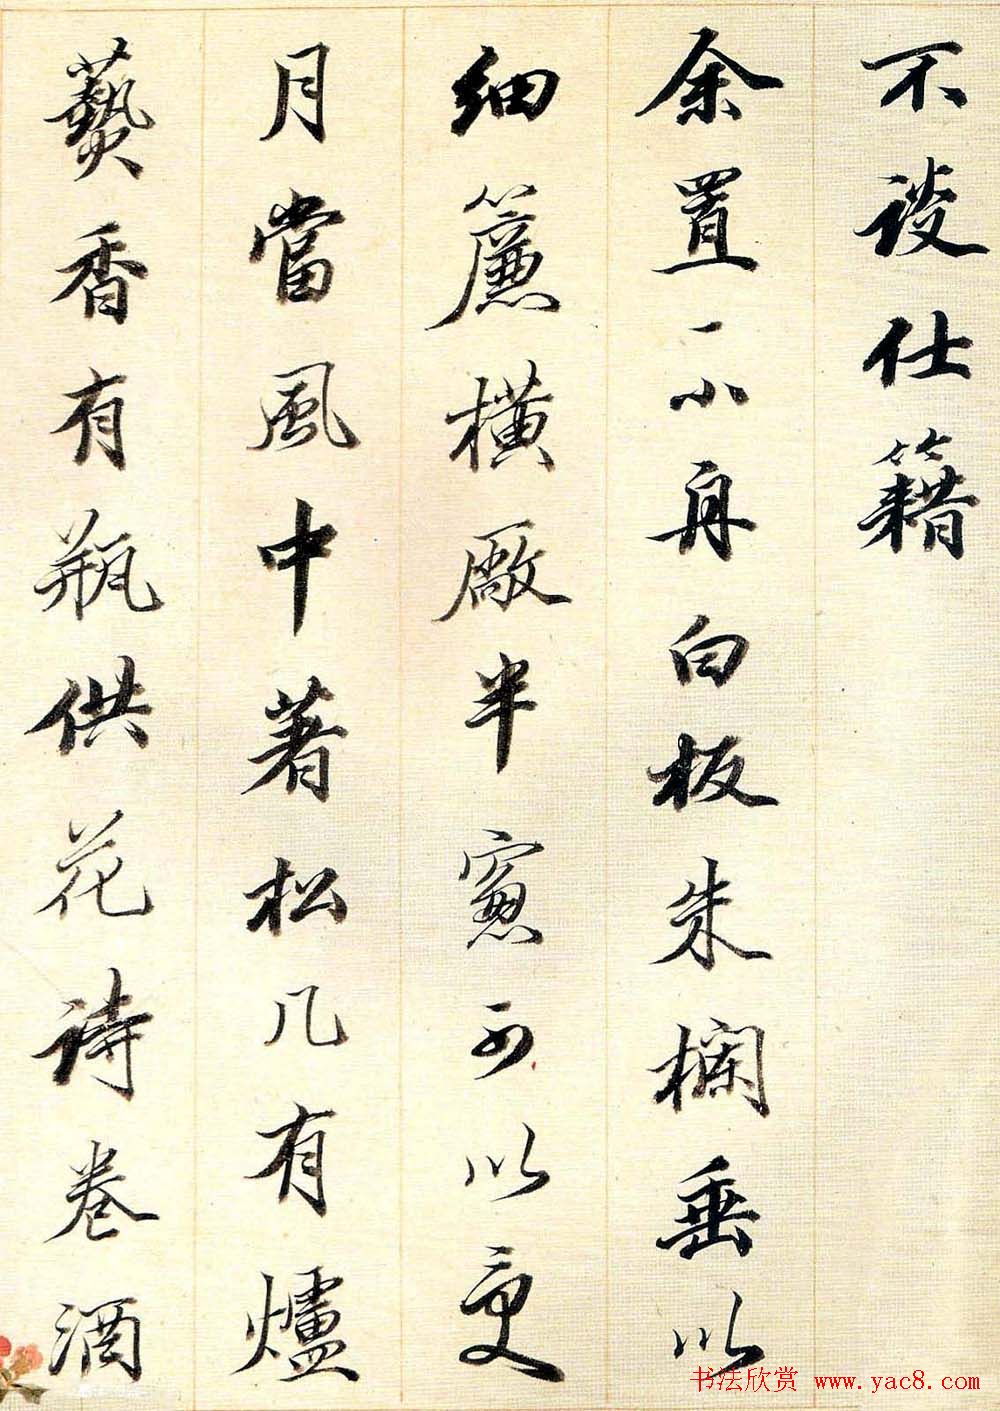 不談仕籍
余置一小舟白板朱欄垂以
細簾橫廠半窻可以更
月當風中著松几有爐
爇香有瓶供花詩卷酒
书法欣赏 www.yac8.com